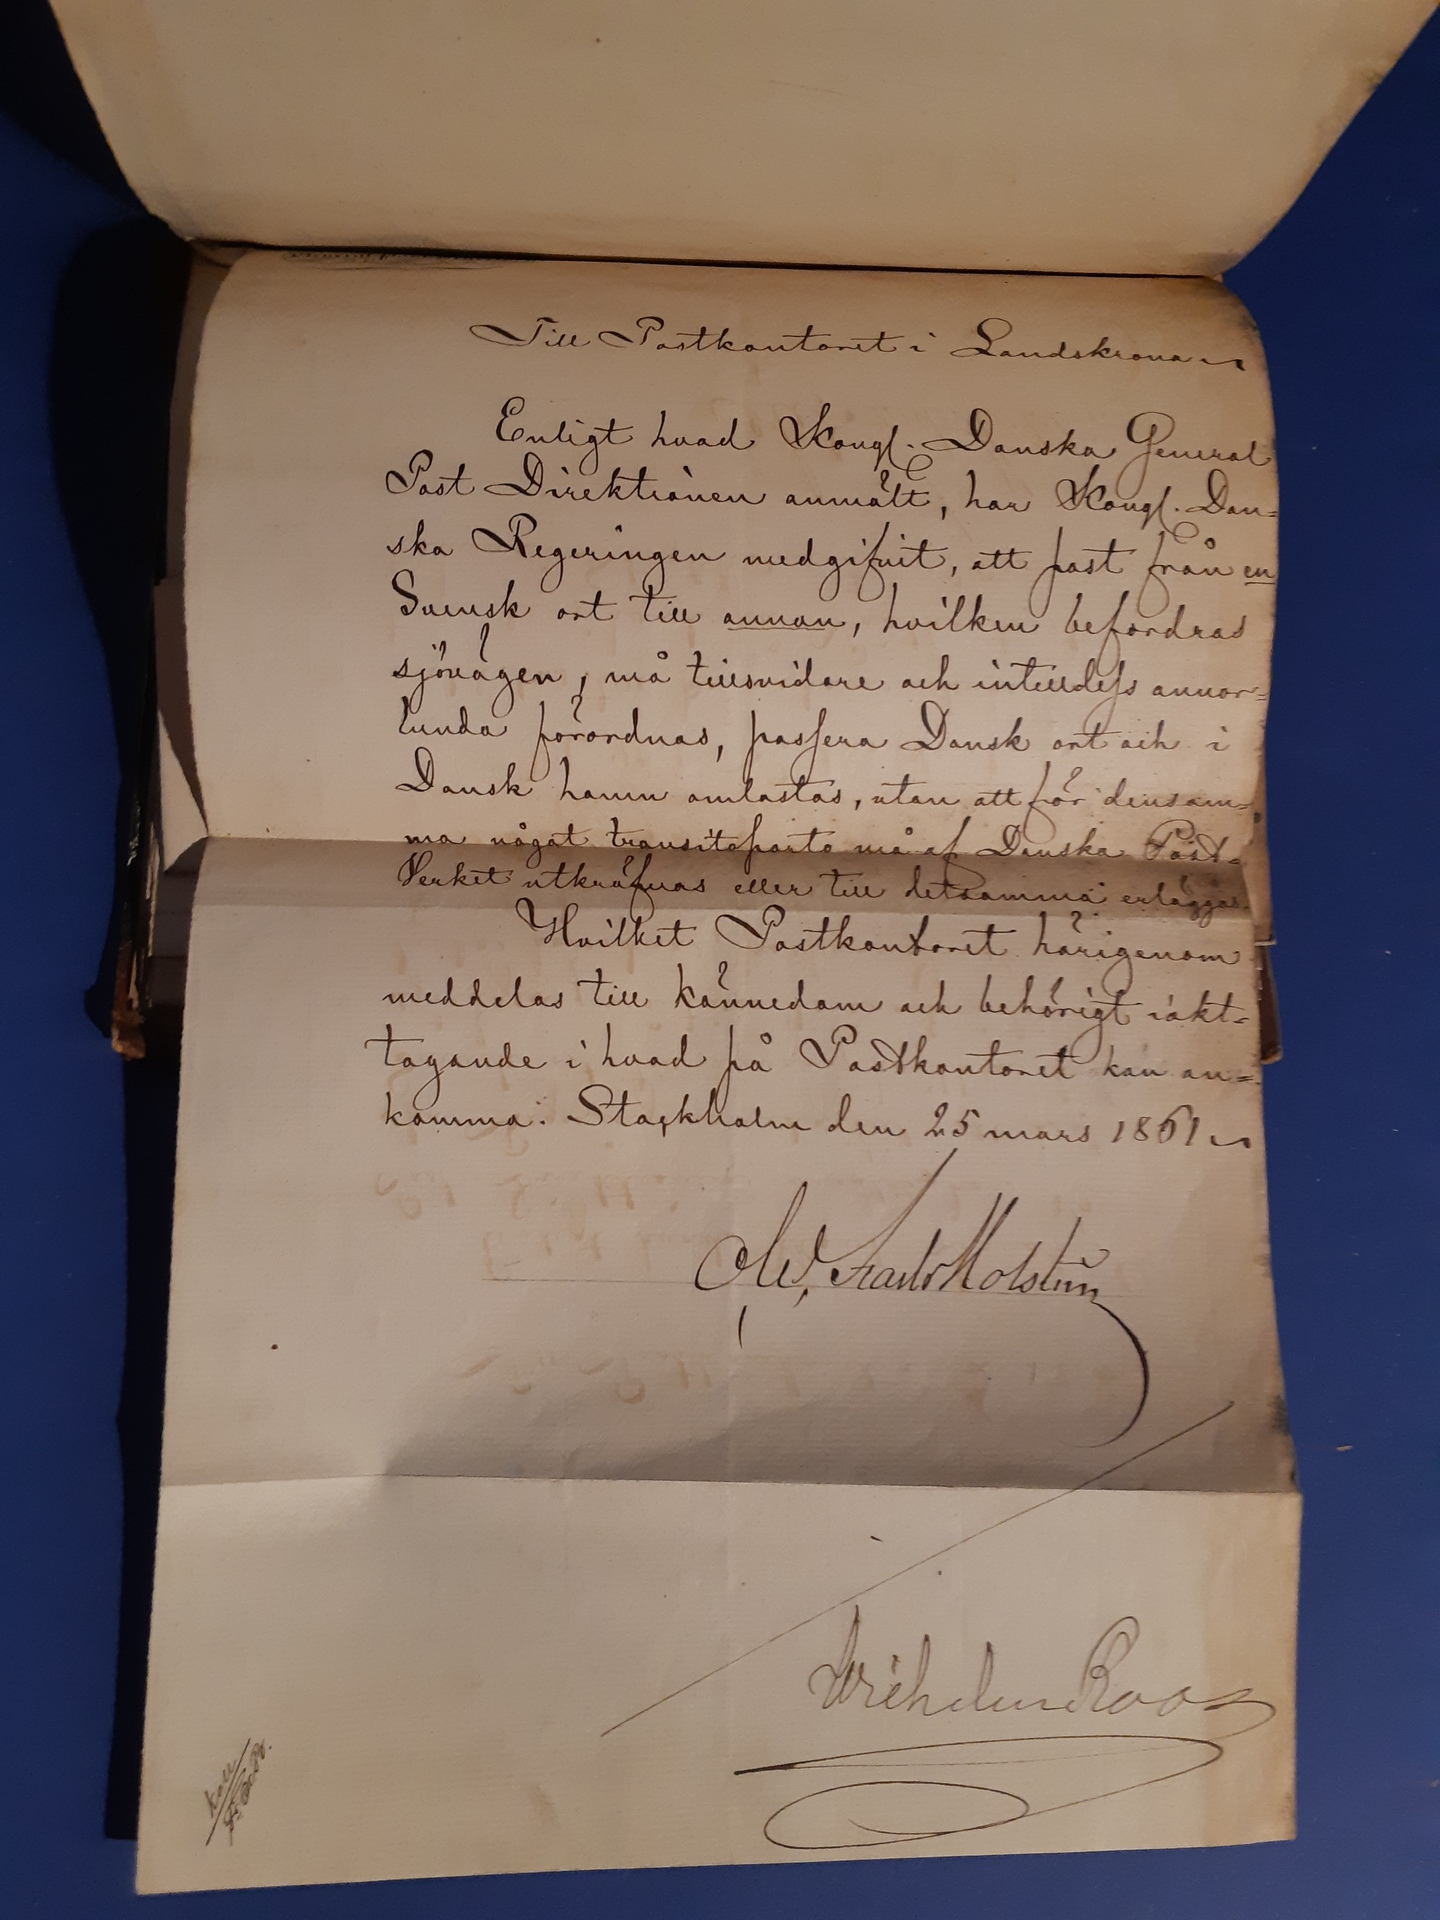 Till Postkontoret i Landskrona
Enligt hvad Kongl. Danska General
Post Direktionen anmält, har Kongl. Dan=
ska Regeringen medgifvit, att post från en
Svensk ort till annan, hvilken befordras
sjövägen, må tillsvidare och intilldess annor=
lunda förordnas, passera Dansk ort och i
Dansk hamn omlastas, utan att för densam=
ma något transitoporto må af Danska Post=
Verket utkräfvas eller till detsamma erläggas.
Hvilket Postkontoret härigenom
meddelas till kännedom och behörigt iakt=
tagande i hvad på Postkontoret kan an=
komma. Stockholm den 25 mars 1861
Wilhelm Roos